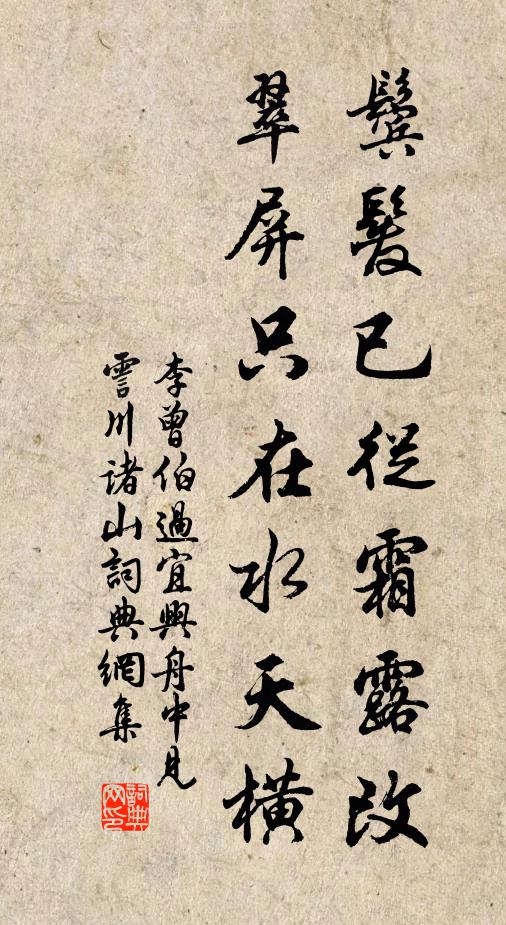 鬢髮已從霜露改
翠屏只在水天橫
李曾伯過宜興舟中見
霅川諸山詞典網集
詞典網印